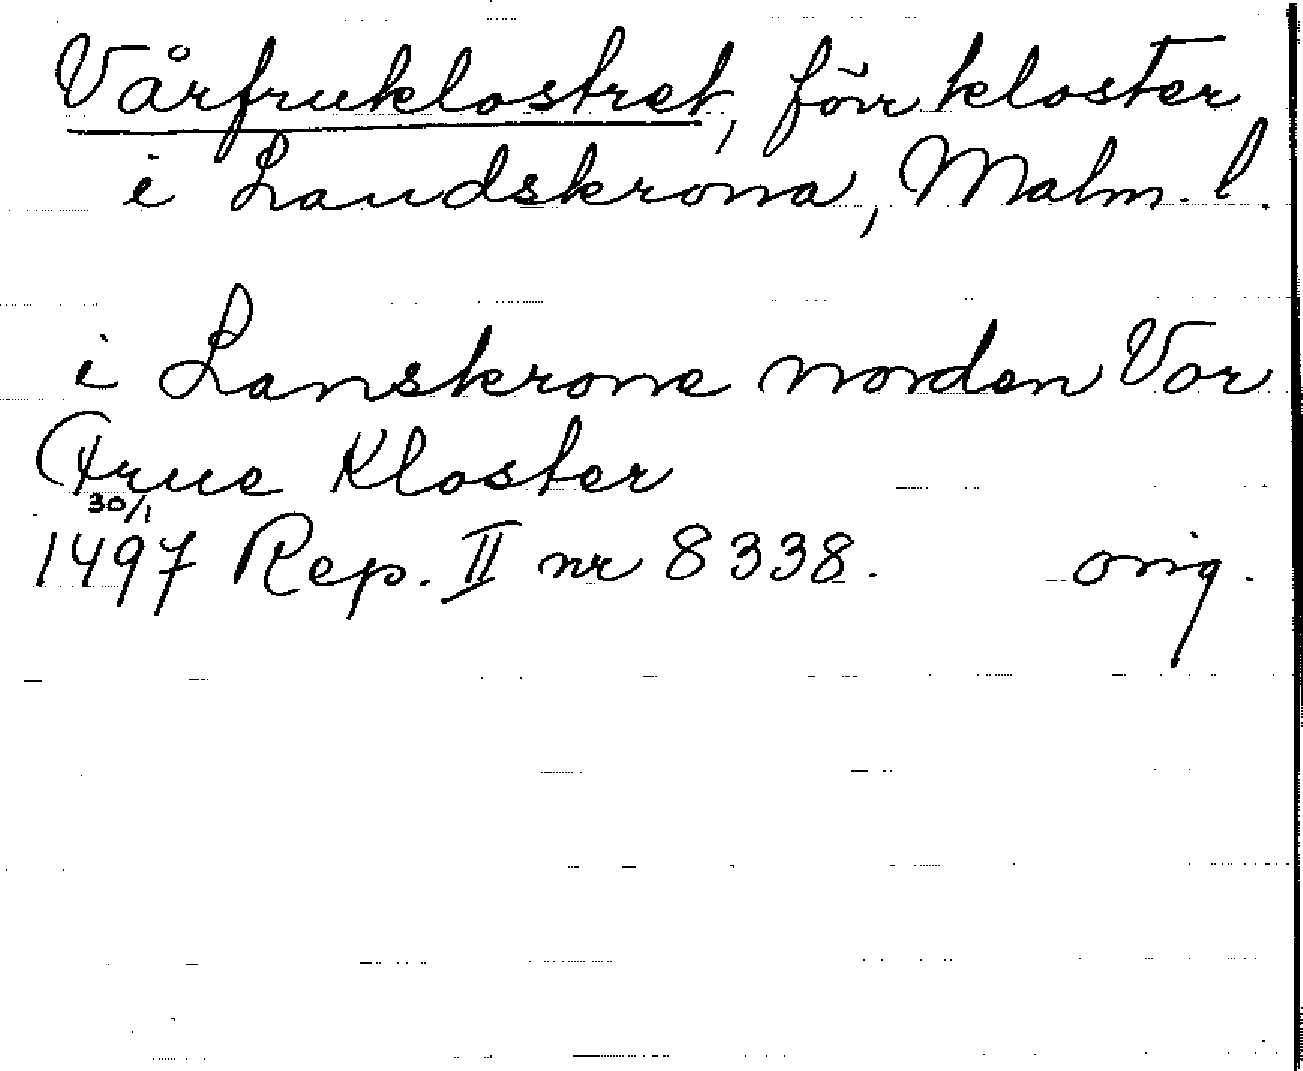 Vårfruklostret, förr kloster
i Landskrona, Malm. l.
i Lanskrone norden Vor
Frue Kloster
30/1
1497 Rep. II nr 8338. orig.